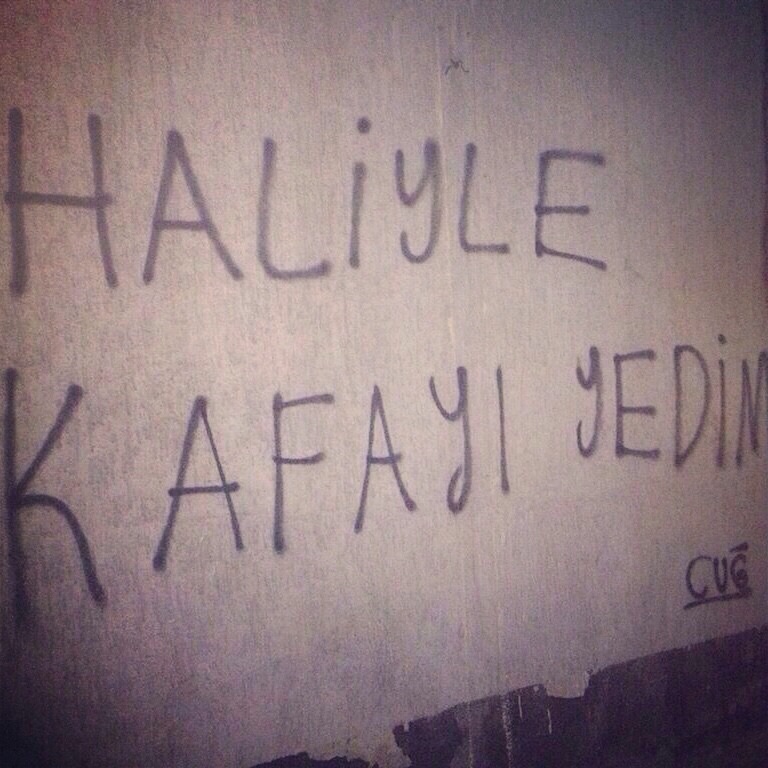 HALİYLE
KAFAYI YEDİM
CUĞ